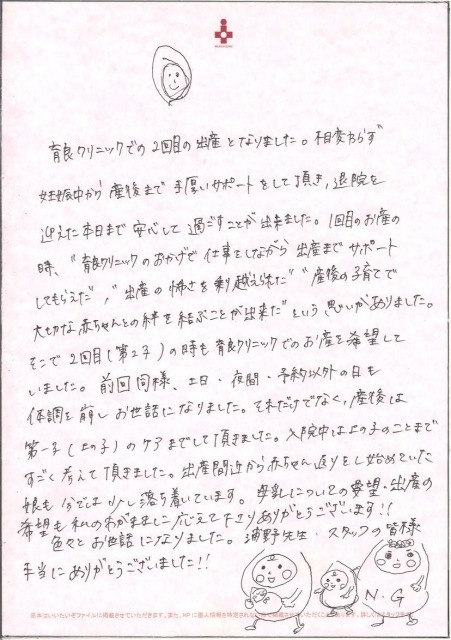 育良クリニックでの2回目の出産となりました。相変わらず
妊娠中から産後まで手厚いサポートをして頂き、退院を
迎えた本日まで安心して過ごすことが出来ました。1回目のお産の
時、"育良クリニックのおかげで仕事をしながら出産までサポート
してもらえた","出産の怖さを乗り越えられた""産後の子育てで
大切な赤ちゃんとの絆を結ぶことが出来た"という思いがありました。
そこで2回目(第2子)の時も育良クリニックでのお産を希望して
いました。前回同様、土日・夜間・予約以外の日も
体調を崩しお世話になりました。それだけでなく、産後は
第一子(上の子)のケアまでして頂きました。入院中は上の子のことまで
すごく考えて頂きました。出産間近から赤ちゃん返りをし始めていた
娘も今では少し落ち着いています。母乳についての要望・出産の
希望も私のわがままに応えて下さりありがとうございます!!
色々とお世話になりました。浦野先生・スタッフの皆様
本当にありがとうございました!!
N・G